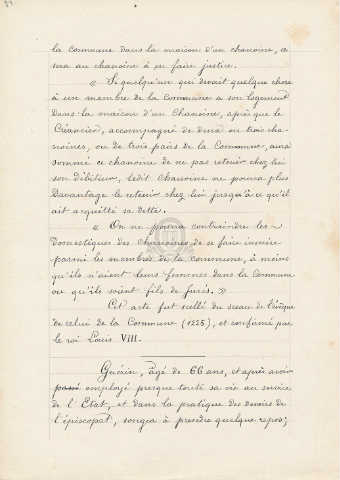 la Commune dans la maison d'un chanoine, ce
sera au chanoine à en faire justice.
« Si quelqu'un qui devait quelque chose
à un membre de la Commune a son logement
dans la maison d'un Chanoine, après que le
Créancier, accompagné de deux ou trois cha-
noines, ou de trois pairs de la Commune, aura
sommé ce chanoine de ne pas retenir chez lui
son débiteur, ledit Chanoine ne pourra plus
davantage le retenir chez lui jusqu'à ce qu'il
ait acquitté sa dette.
« On ne pourra contraindre les
domestiques des Chanoines de se faire inscrire
parmi les membres de la commune, à moins
qu'ils n'aient leurs femmes dans la Commune
ou qu'ils soient fils de jurés. »
Cet acte fut scellé du sceau de l'évêque
de celui de la Commune (1225), et confirmé par
le roi Louis VIII.
Guérin, âgé de 66 ans, et après avoir
passé employé presque toute sa vie au service
de l'Etat, et dans la pratique des devoirs de
l'épiscopat, songea à prendre quelque repos;